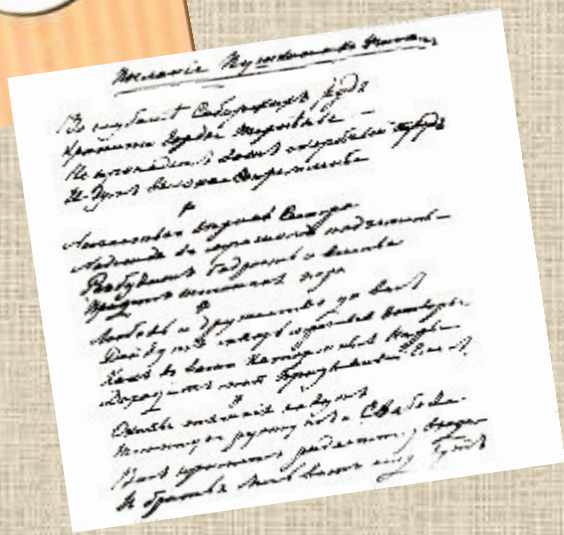 Посланіе Пушкина
Во глубинѣ Сибирскихъ рудъ
Храните гордое терпѣнье —
Не пропадетъ вашъ скорбный трудъ
И думъ высокое стремленье
*
Несчастья вѣрная Сестра
Надежда въ мрачномъ подземельи
Разбудитъ бодрость и веселье
Придетъ желанная пора
*
Любовь и дружество до васъ
Дойдутъ сквозь мрачные затворы
Какъ въ ваши каторжныя норы
Доходитъ мой
*
Оковы тяжкія падутъ
Темницы рухнутъ и Свобода
Васъ приметъ радостно у входа
И братья мечъ вамъ